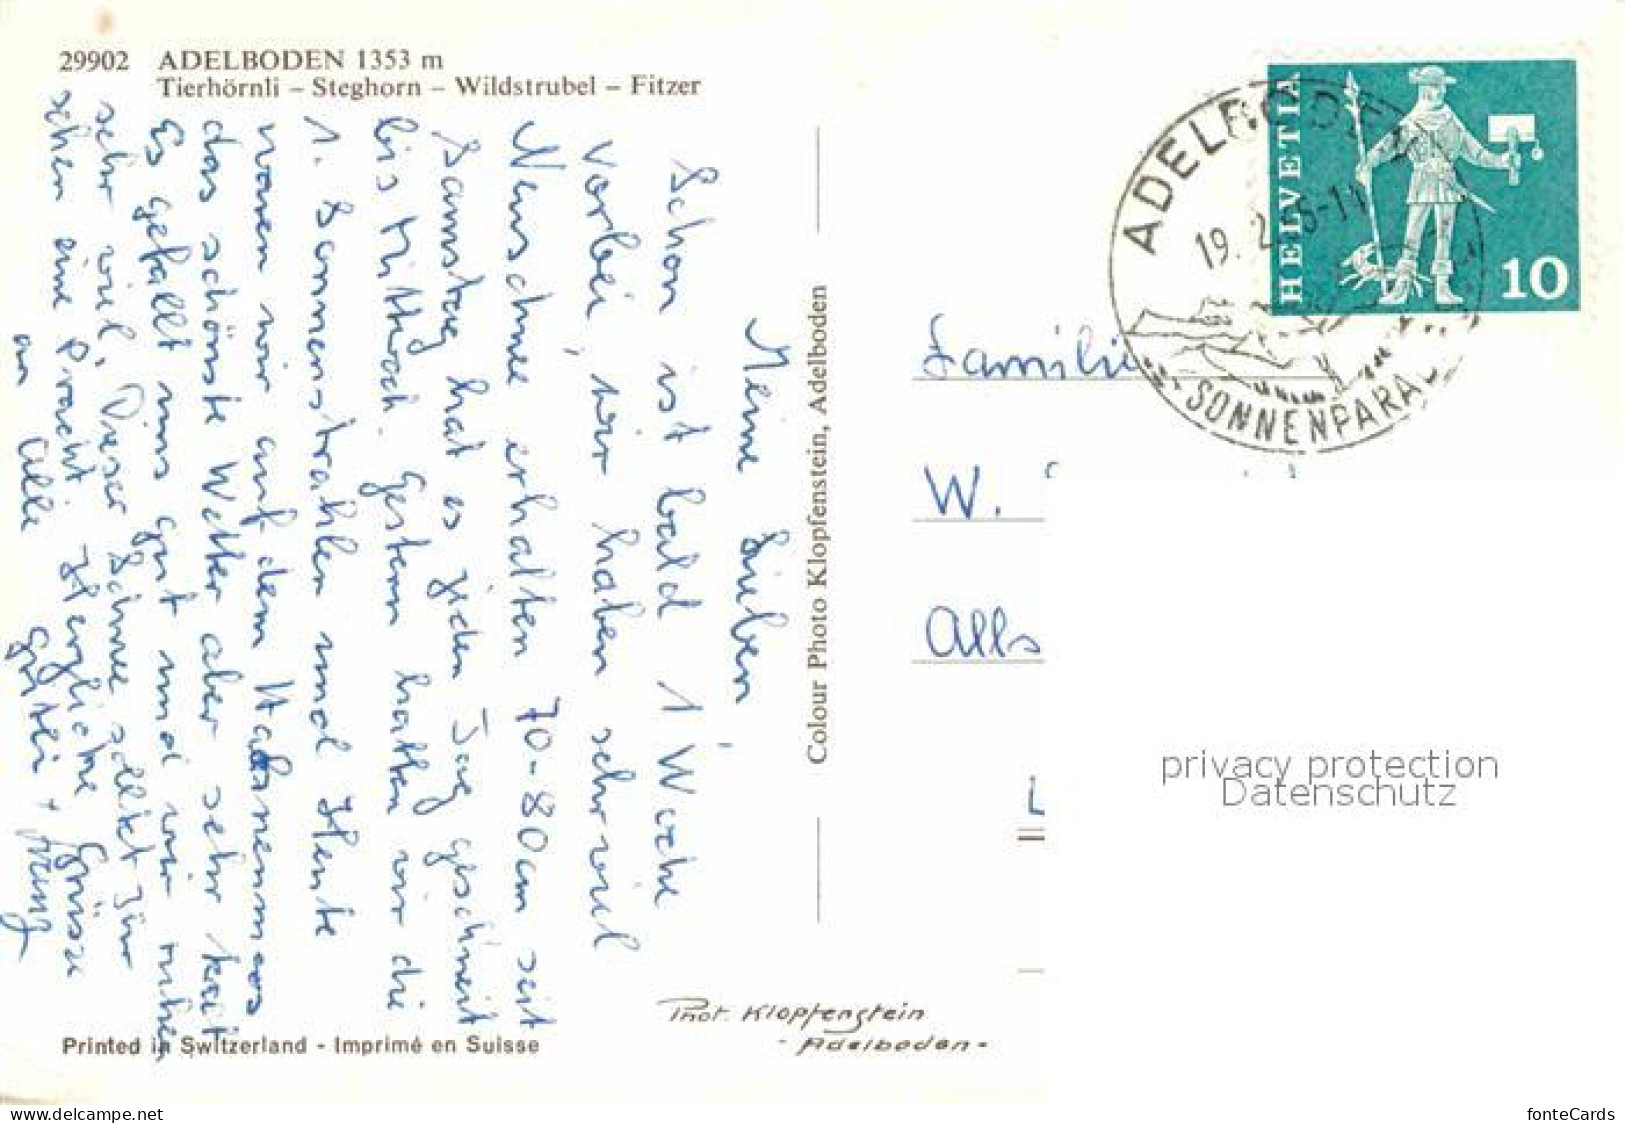 29902 ADELBODEN 1353 m
Tierhörnli – Steghorn – Wildstrubel – Fitzer
Meine Lieben,
Schon ist bald 1 Woche
vorbei, wir haben sehr viel
Neuschnee erhalten 70-80cm seit
Samstag hat es jeden Tag geschneit
bis Mittwoch. Gestern hatten wir die
1. Sonnenstrahlen und Heute
waren wir auf dem Hahnenmoos
das schönste Wetter aber sehr kalt
Es gefällt uns gut und wir ruhen
sehr viel. Dieser Schnee selbst zur
schen eine Pracht. Herzliche Grüsse
an Alle
Colour Photo Klopfenstein, Adelboden
HELVETIA
10
ADELBODEN
19. 2.
SONNENPARA
Familie
W.
Alls
L
privacy protection
Datenschutz
Phot. Klopfenstein
- Adelboden -
Printed in Switzerland - Imprimé en Suisse
www.delcampe.net
fonteCards